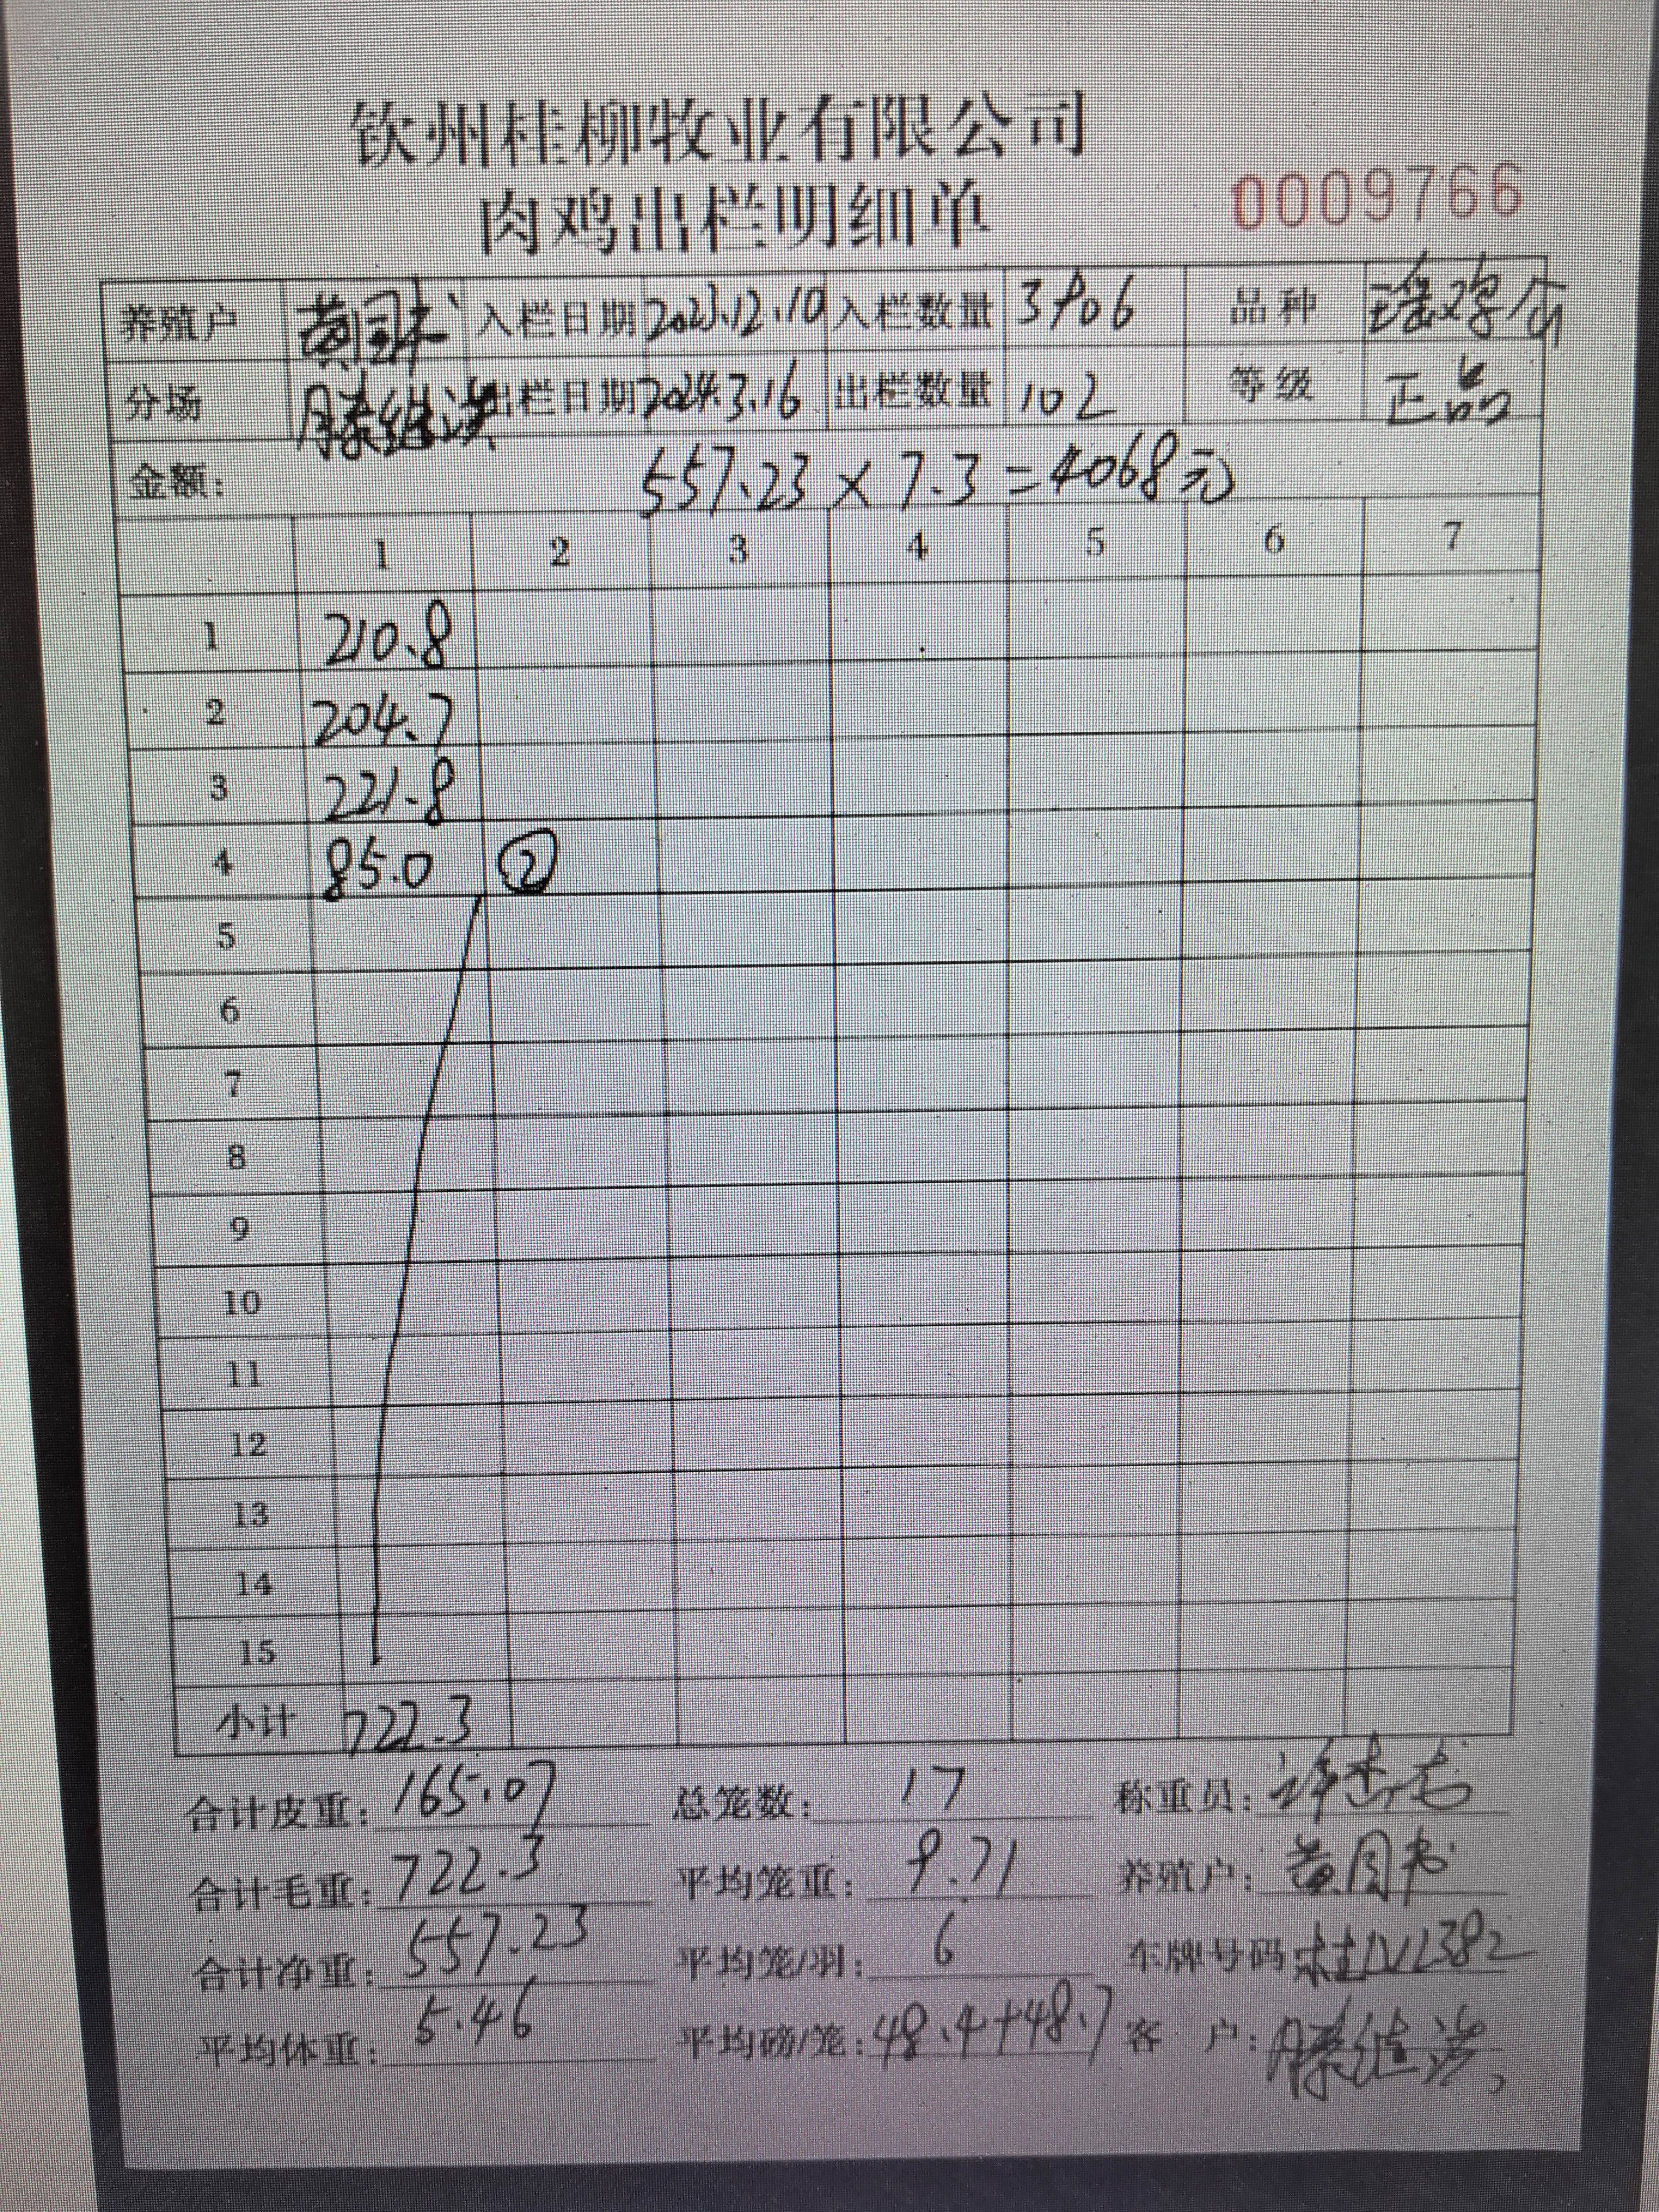 钦州桂柳牧业有限公司
肉鸡出栏明细单
0009766
养殖户 入栏日期 2023.12.10 入栏数量 3906 品种 瑶鸡
分场 滕继 出栏日期 2024.3.16 出栏数量 102 等级 正品
金额: 557.23 × 7.3 = 4068元
1 2 3 4 5 6 7
1 210.8
2 204.7
3 221.8
4 85.0 ②
5
6
7
8
9
10
11
12
13
14
15
小计 722.3
合计皮重: 165.07 总笼数: 17 称重员: 许
合计毛重: 722.3 平均笼重: 9.71 养殖户: 黄
合计净重: 557.23 平均笼/羽: 6 车牌号码
平均体重: 5.46 平均磅/笼: 48.4+48.7 客 户: 滕继